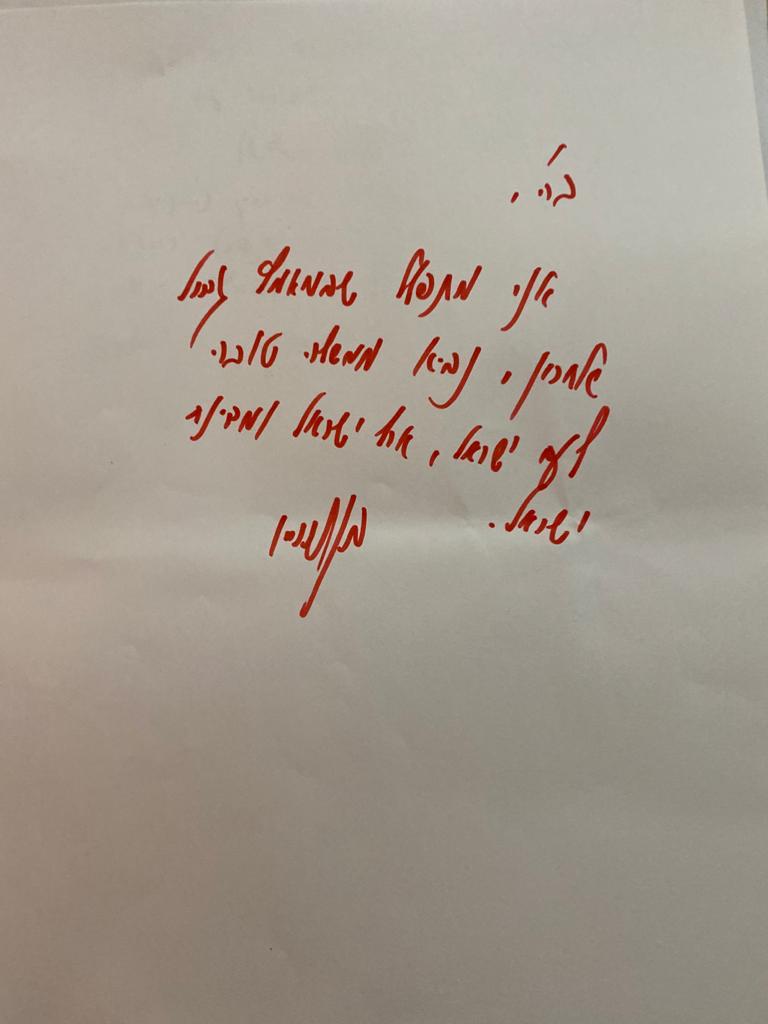 ב"ה,
אני מתפלל שבמאמץ גדול
ואחרון, נביא ממשלה טובה
לעם ישראל, ארץ ישראל ומדינת
ישראל.